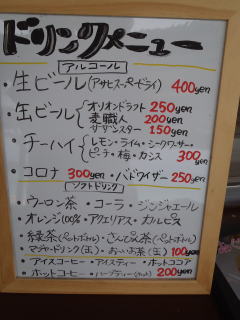 ドリンクメニュー
アルコール
・生ビール(アサヒスーパードライ) 400yen
・缶ビール オリオンドラフト 250yen
麦職人 200yen
サザンスター 150yen
・チーハイ レモン・ライム・シークワーサー・
ピーチ・梅・カシス 300yen
・コロナ 300yen ・バドワイザー 250yen
ソフトドリンク
・ウーロン茶 ・コーラ ・ジンジャエール
・オレンジ100% ・アクエリアス ・カルピス
・緑茶(ペットボトル) ・さんぴん茶(ペットボトル)
・マジャードリンク(缶) ・お〜いお茶(缶) 100yen
・アイスコーヒー ・アイスティー ・ホットココア
・ホットコーヒー ・ハーブティー(ホット) 200yen